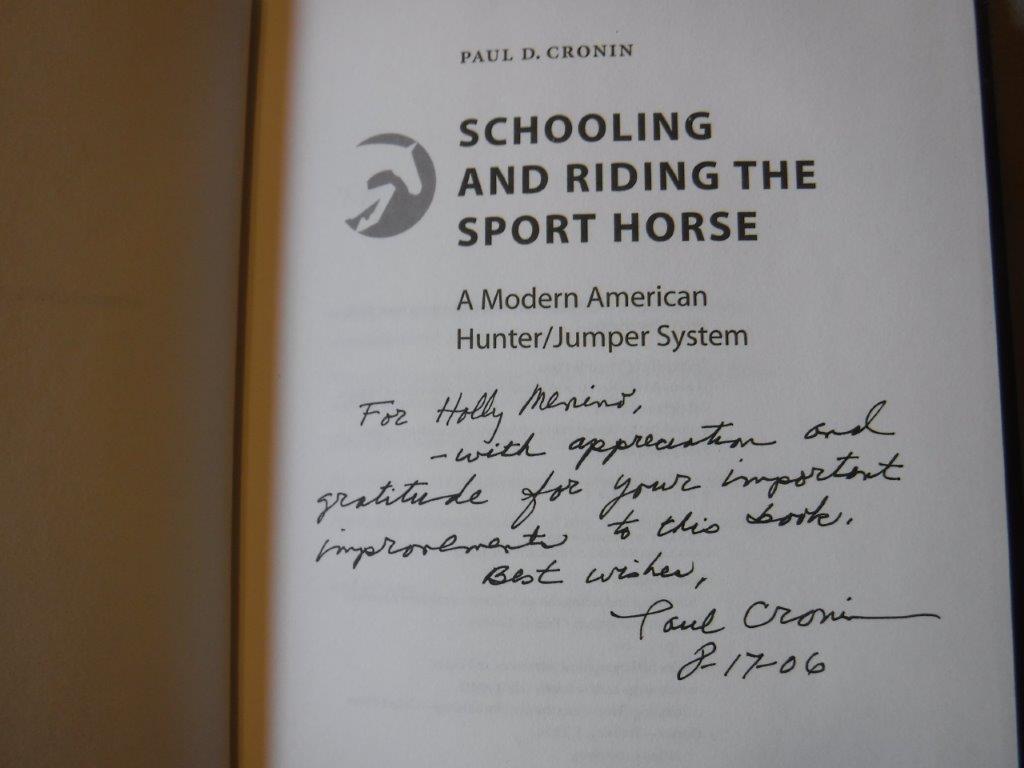 PAUL D. CRONIN
SCHOOLING
AND RIDING THE
SPORT HORSE
A Modern American
Hunter/Jumper System
For Holly Menino,
-with appreciation and
gratitude for your important
improvements to this book.
Best wishes,
Paul Cronin
8-17-06